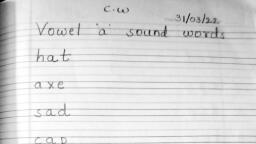 C.W
31/03/22
Vowel 'a' sound words
hat
axe
sad
cap